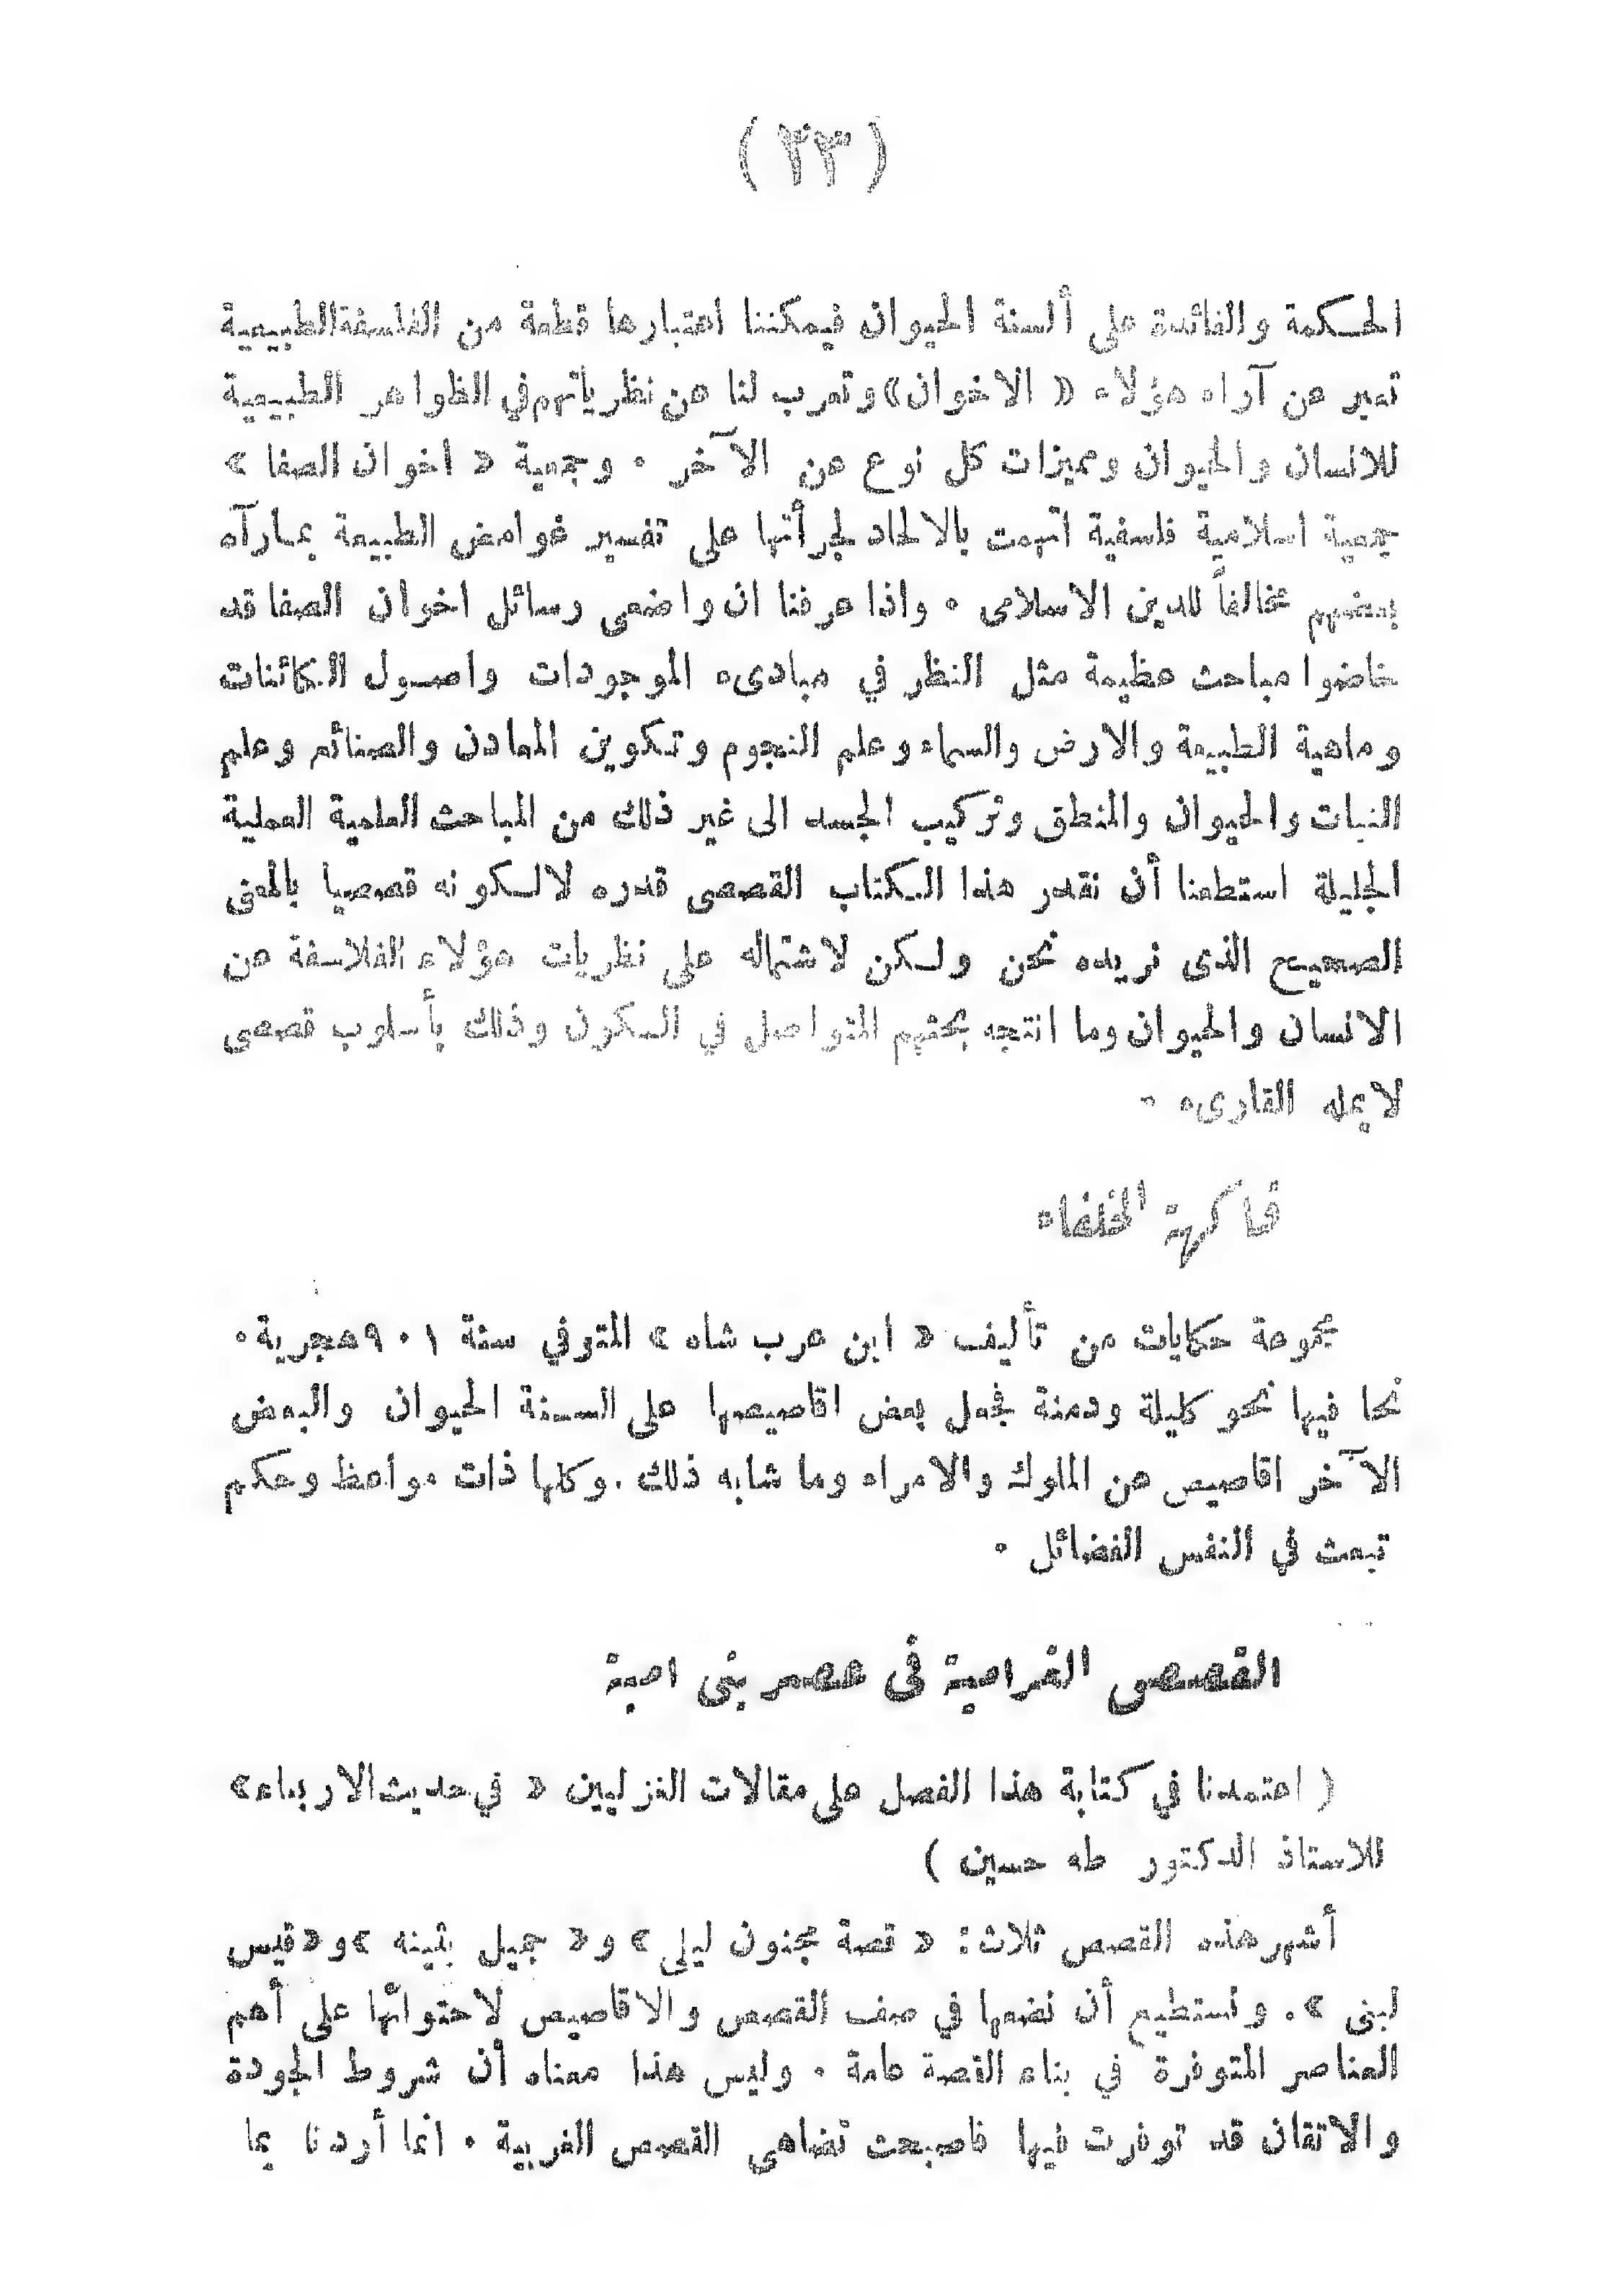 ( ٤٣ )
الحكمة والفائدة على ألسنة الحيوان فيمكننا اعتبارها قطعة من الفلسفة الطبيعية
تعبر عن آراء هؤلاء « الاخوان » وتعرب لنا عن نظرياتهم في الظواهر الطبيعية
للانسان والحيوان ومميزات كل نوع عن الآخر . وجمعية « اخوان الصفا »
جمعية اسلامية فلسفية اتهمت بالالحاد لجرأتها على تفسير غوامض الطبيعة بما رآه
بعضهم مخالفاً للدين الاسلامى . واذا عرفنا ان واضعى رسائل اخوان الصفا قد
خاضوا مباحث عظيمة مثل النظر في مبادىء الموجودات واصول الكائنات
وماهية الطبيعة والارض والسماء وعلم النجوم وتكوين المعادن والصنائع وعلم
النبات والحيوان والمنطق وتركيب الجسد الى غير ذلك من المباحث العلمية العملية
الجليلة استطعنا أن نقدر هذا الكتاب القصصى قدره لا لكونه قصصيا بالمعنى
الصحيح الذى نريده نحن ولكن لاشتماله على نظريات هؤلاء الفلاسفة عن
الانسان والحيوان وما انتجه بحثهم المتواصل في الكون وذلك بأسلوب قصصى
لا يمله القارىء .
فاكهة الخلفاء
مجموعة حكايات من تأليف « ابن عرب شاه » المتوفي سنة ٩٠١ هجرية .
نحا فيها نحو كليلة ودمنة فجعل بعض اقاصيصها على السنة الحيوان والبعض
الآخر اقاصيص عن الملوك والامراء وما شابه ذلك . وكلها ذات مواعظ وحكم
تبعث في النفس الفضائل .
القصص الغرامية فى عصر بنى امية
( اعتمدنا في كتابة هذا الفصل على مقالات الغزليين « في حديث الاربعاء »
للاستاذ الدكتور طه حسين )
أشهر هذه القصص ثلاث : « قصة مجنون ليلى » و « جميل بثينه » و « قيس
لبنى » . ونستطيع أن نضعها في صف القصص والاقاصيص لاحتوائها على أهم
العناصر المتوفرة في بناء القصة عامة . وليس هذا معناه أن شروط الجودة
والاتقان قد توفرت فيها فاصبحت تضاهى القصص الغربية . انما أردنا بما